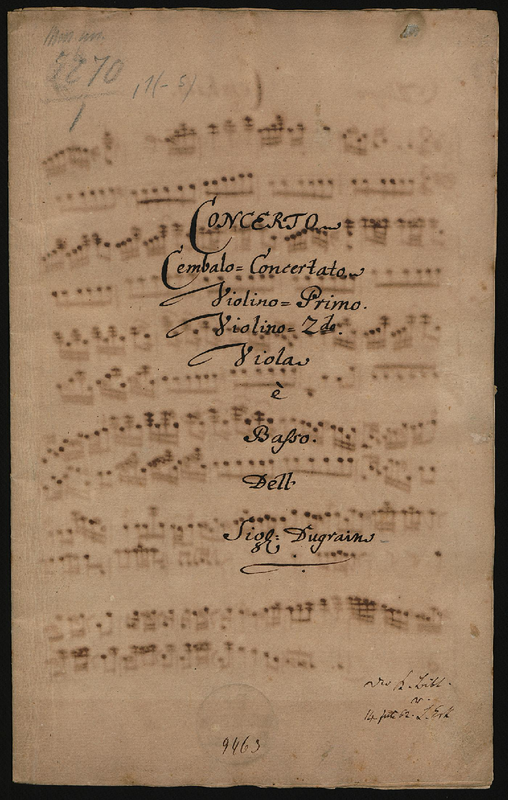 Mus. ms.
5270
1
(1-5)
CONCERTO
Cembalo = Concertato
Violino = Primo.
Violino = 2do.
Viola
è
Basso.
Dell
Sigl: Dugrain
Der K. Bibl.
v.
L. Erk
9463